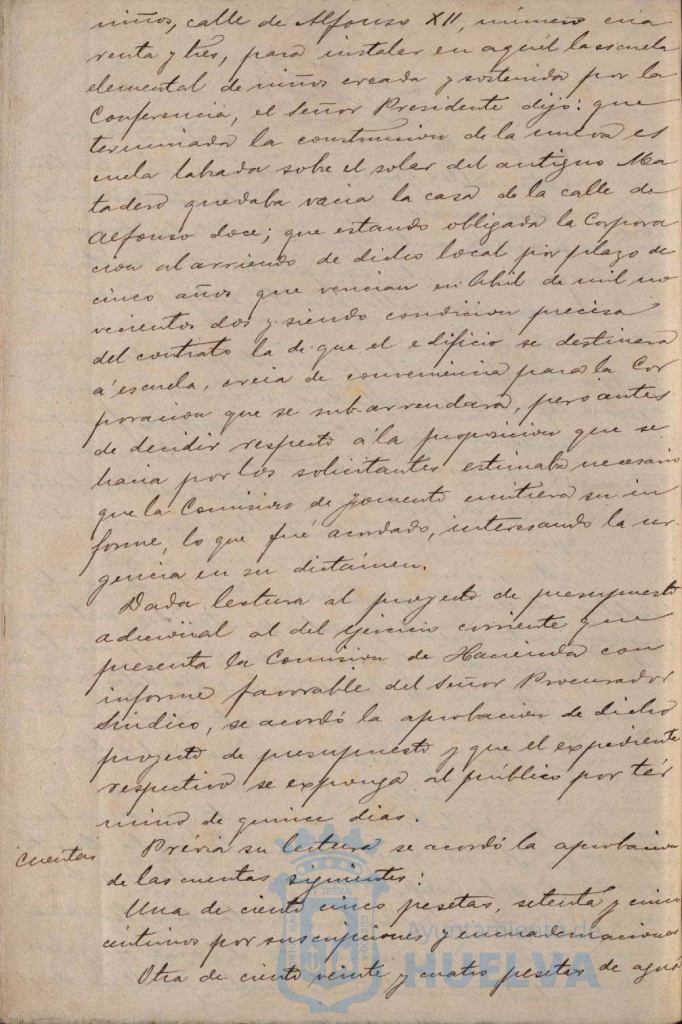 niños, calle de Alfonso XII, número cua
renta y tres, para instalar en aquél la escuela
elemental de niños creada y sostenida por la
Conferencia, el Señor Presidente dijo: que
terminada la construccion de la nueva es
cuela labrada sobre el solar del antiguo Ma
tadero quedaba vacia la casa de la calle de
Alfonso doce; que estando obligada la Corpora
cion al arriendo de dicho local por plazo de
cinco años que vencian en Abril de mil no
vecientos dos y siendo condicion precisa
del contrato la de que el edificio se destinara
á escuela, creia de conveniencia para la Cor
poracion que se sub-arrendara, pero antes
de decidir respecto á la proposicion que se
hacia por los solicitantes estimaba necesario
que la Comision de Fomento emitiera su in
forme, lo que fué acordado, interesando la ur-
gencia en su dictámen.
Dada lectura al proyecto de presupuesto
adicional al del ejercicio corriente que
presenta la Comision de Hacienda con
informe favorable del Señor Procurador
Síndico, se acordó la aprobacion de dicho
proyecto de presupuesto y que el expediente
respectivo se exponga al público por tér
mino de quince dias.
Cuentas
Prévia su lectura se acordó la aprobacion
de las cuentas siguientes:
Una de ciento cinco pesetas, setenta y cinco
céntimos por suscripciones y encuadernaciones
Otra de ciento veinte y cuatro pesetas de
Ayuntamiento de
HUELVA